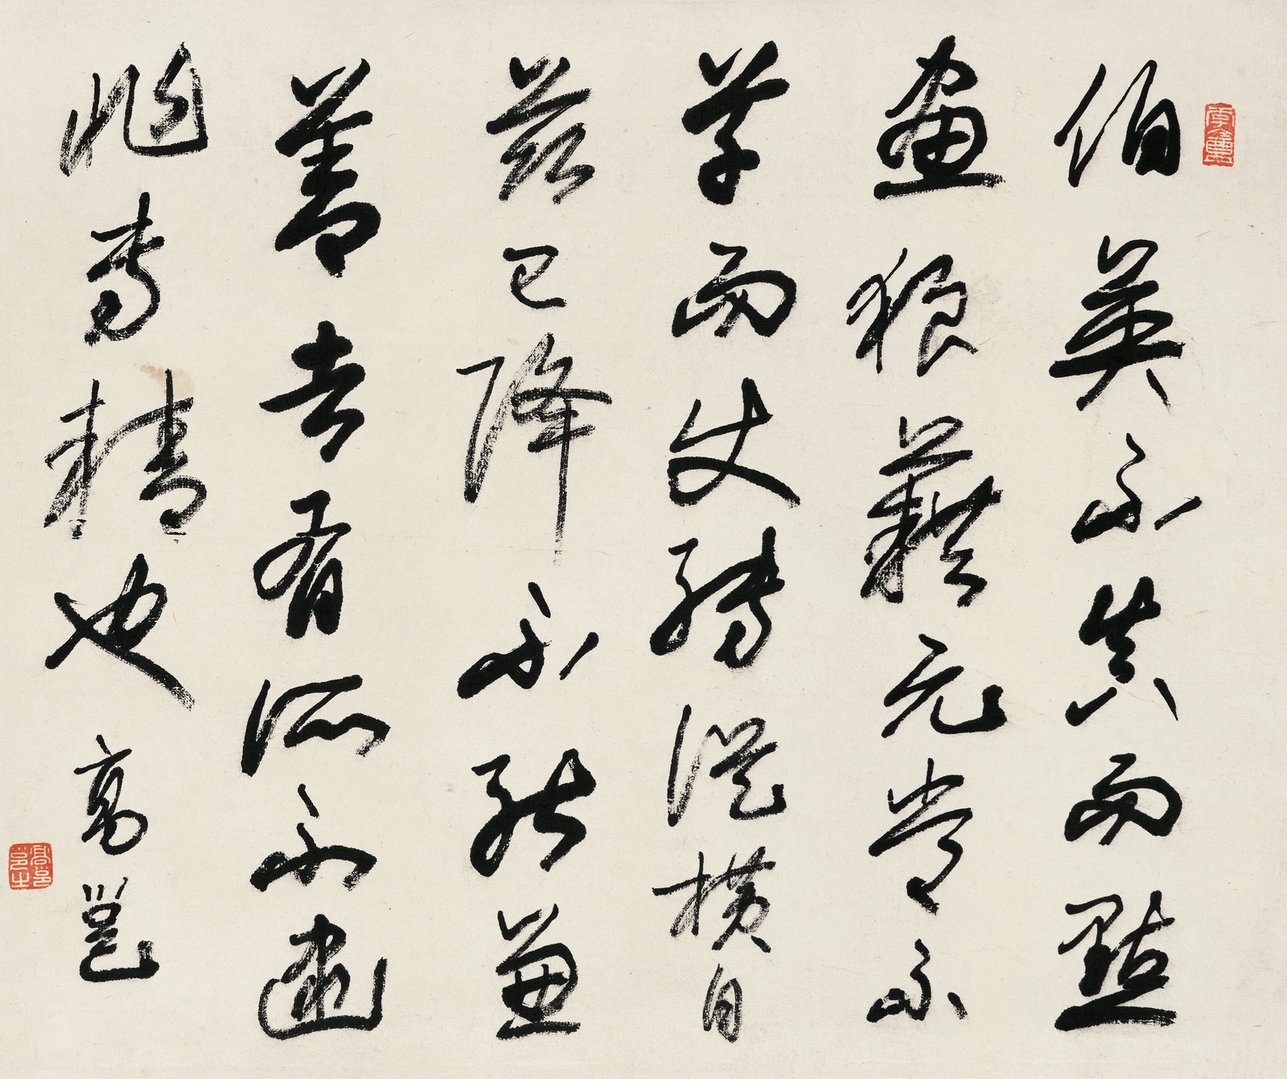 李盦
伯英不真而點
畫狼藉元常不
草而使轉從橫自
茲已降不能兼
善者有所不逮
非專精也
高邕
高邕之